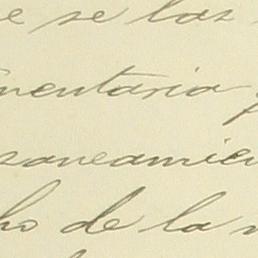 e se las
mentaria y
saneamien
ho de la